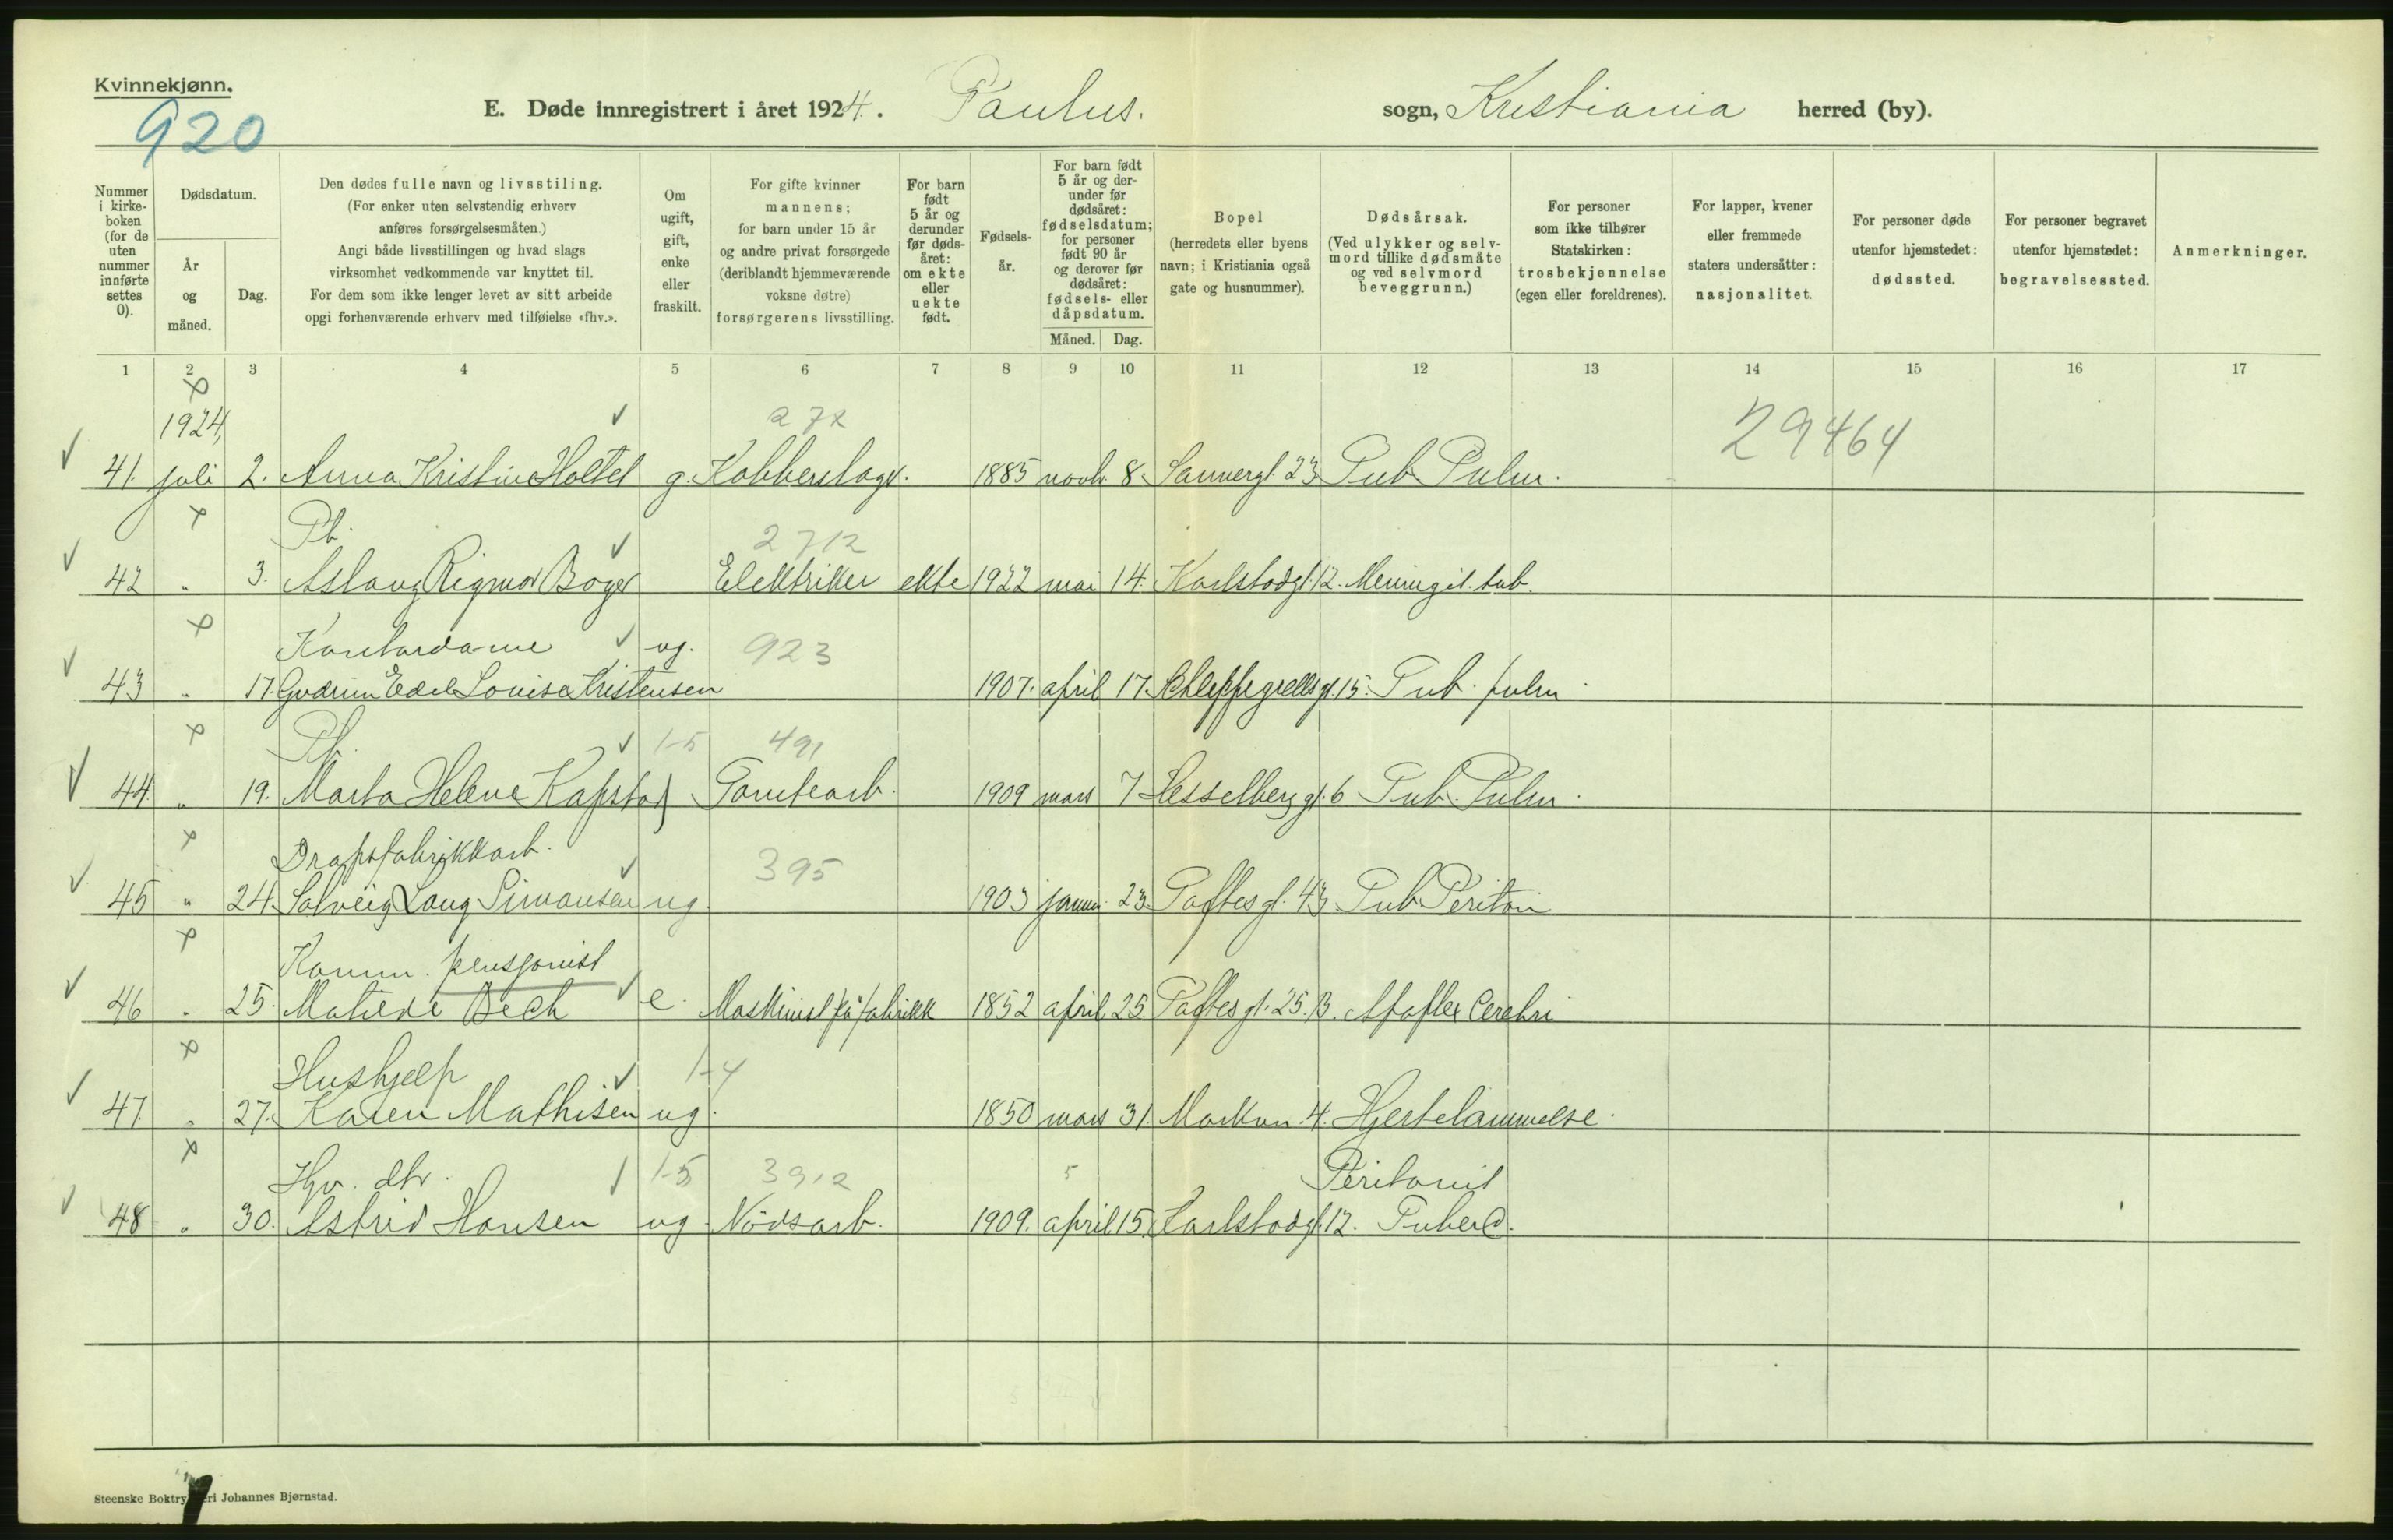 Kvinnekjønn.
920
E. Døde innregistrert i året 1924. Paulus. sogn, Kristiania herred (by).
Nummer i kirkeboken (for de uten nummer innførte settes 0).
Dødsdatum.
År og måned.
Dag.
Den dødes fulle navn og livsstiling.
(For enker uten selvstendig erhverv
anføres forsørgelsesmåten.)
Angi både livsstillingen og hvad slags
virksomhet vedkommende var knyttet til.
For dem som ikke lenger levet av sitt arbeide
opgi forhenværende erhverv med tilføielse «fhv.».
Om ugift, gift, enke eller fraskilt.
For gifte kvinner
mannens;
for barn under 15 år
og andre privat forsørgede
(deriblandt hjemmeværende
voksne døtre)
forsørgerens livsstilling.
For barn født 5 år og derunder før dødsåret: om ekte eller uekte født.
Fødselsår.
For barn født 5 år og derunder før dødsåret: fødselsdatum; for personer født 90 år og derover før dødsåret: fødsels- eller dåpsdatum.
Måned. Dag.
Bopel
(herredets eller byens
navn; i Kristiania også
gate og husnummer).
Dødsårsak.
(Ved ulykker og selvmord tillike dødsmåte
og ved selvmord
beveggrunn.)
For personer
som ikke tilhører
Statskirken:
trosbekjennelse
(egen eller foreldrenes).
For lapper, kvener
eller fremmede
staters undersåtter:
nasjonalitet.
For personer døde
utenfor hjemstedet:
dødssted.
For personer begravet
utenfor hjemstedet:
begravelsessted.
Anmerkninger.
1 2 3 4 5 6 7 8 9 10 11 12 13 14 15 16 17
1924, 272 29464
41. juli 2. Anna Kristine Holtet g. Kobberslag. 1885 novb. 8. Sannergt. 23 Tub. Pulm.
Pb. 2712
42 " 3. Aslaug Rigmor Boger Elektriker ekte 1922 mai 14. Karlstadgt. 12. Meningit. tub.
Kontordame ug. 923
43 " 17. Gudrun Edel Louise Kristensen 1907. april 17. Schleppegrellsgt. 15. Tub. pulm.
Pb. 1-5 491
44. " 19. Marta Helene Kapstad Tomtearb. 1909 mars 7 Hesselberggt. 6 Tub. Pulm.
Dropsfabrikkarb. 395
45 " 24. Solveig Laug Simonsen ug. 1903 januar. 23. Toftesgt. 43. Tub. Periton
Komm. pensjonist
46 " 25. Matilde Bech e. Maskinist på fabrikk 1852 april 25. Toftesgt. 25. B. Apoplex Cerebri
Hushjelp 1-4
47. " 27. Karen Mathisen ug. 1850 mars 31. Markvn. 4. Hjertelammelse.
Hjv. dtr. 1-5 3912 5 Peritonit
48 " 30. Astrid Hansen ug. Nödsarb. 1909. april 15. Karlstadgt. 12. Tubercl.
Steenske Boktrykkeri Johannes Bjørnstad.